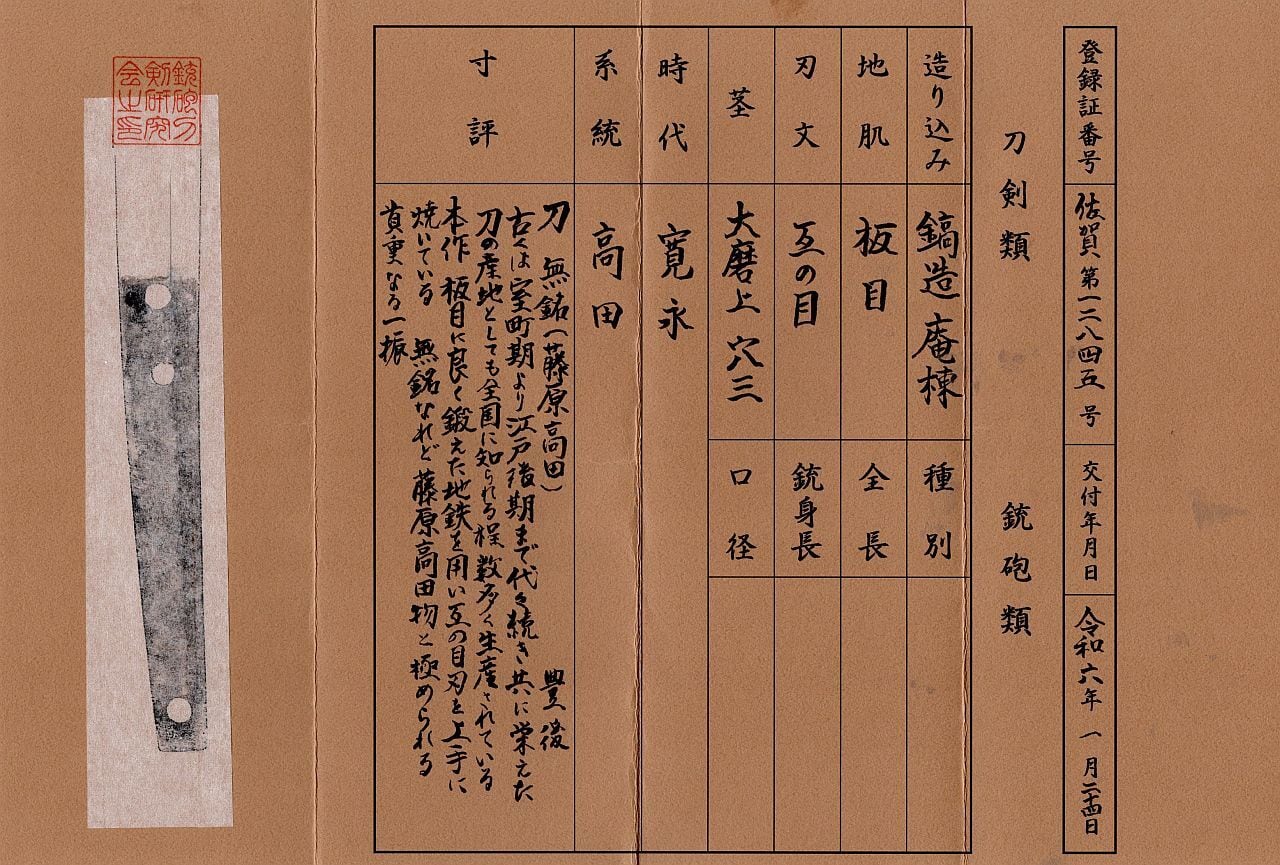 登録証番号 佐賀 第一二八四五 号 交付年月日 令和六年 一月二十四日
刀剣類 銃砲類
造り込み 鎬造 庵棟 種別
地肌 板目 全長
刃文 互の目 銃身長
茎 大磨上 穴三 口径
時代 寛永
系統 高田
寸評 刀 無銘(藤原高田) 豊後
古くは室町期より江戸後期まで代々続き共に栄えた
刀の産地としても全国に知られる程数多く生産されている
本作 板目に良く鍛えた地鉄を用い互の目刃を上手に
焼いている 無銘なれど藤原高田物と極められる
貴重なる一振
銃砲刀
剣研究
会之印